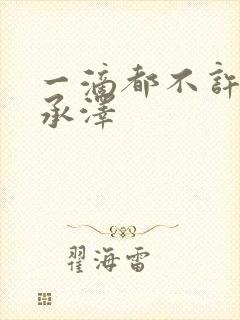 一滴都不许
承泽
翟海雷